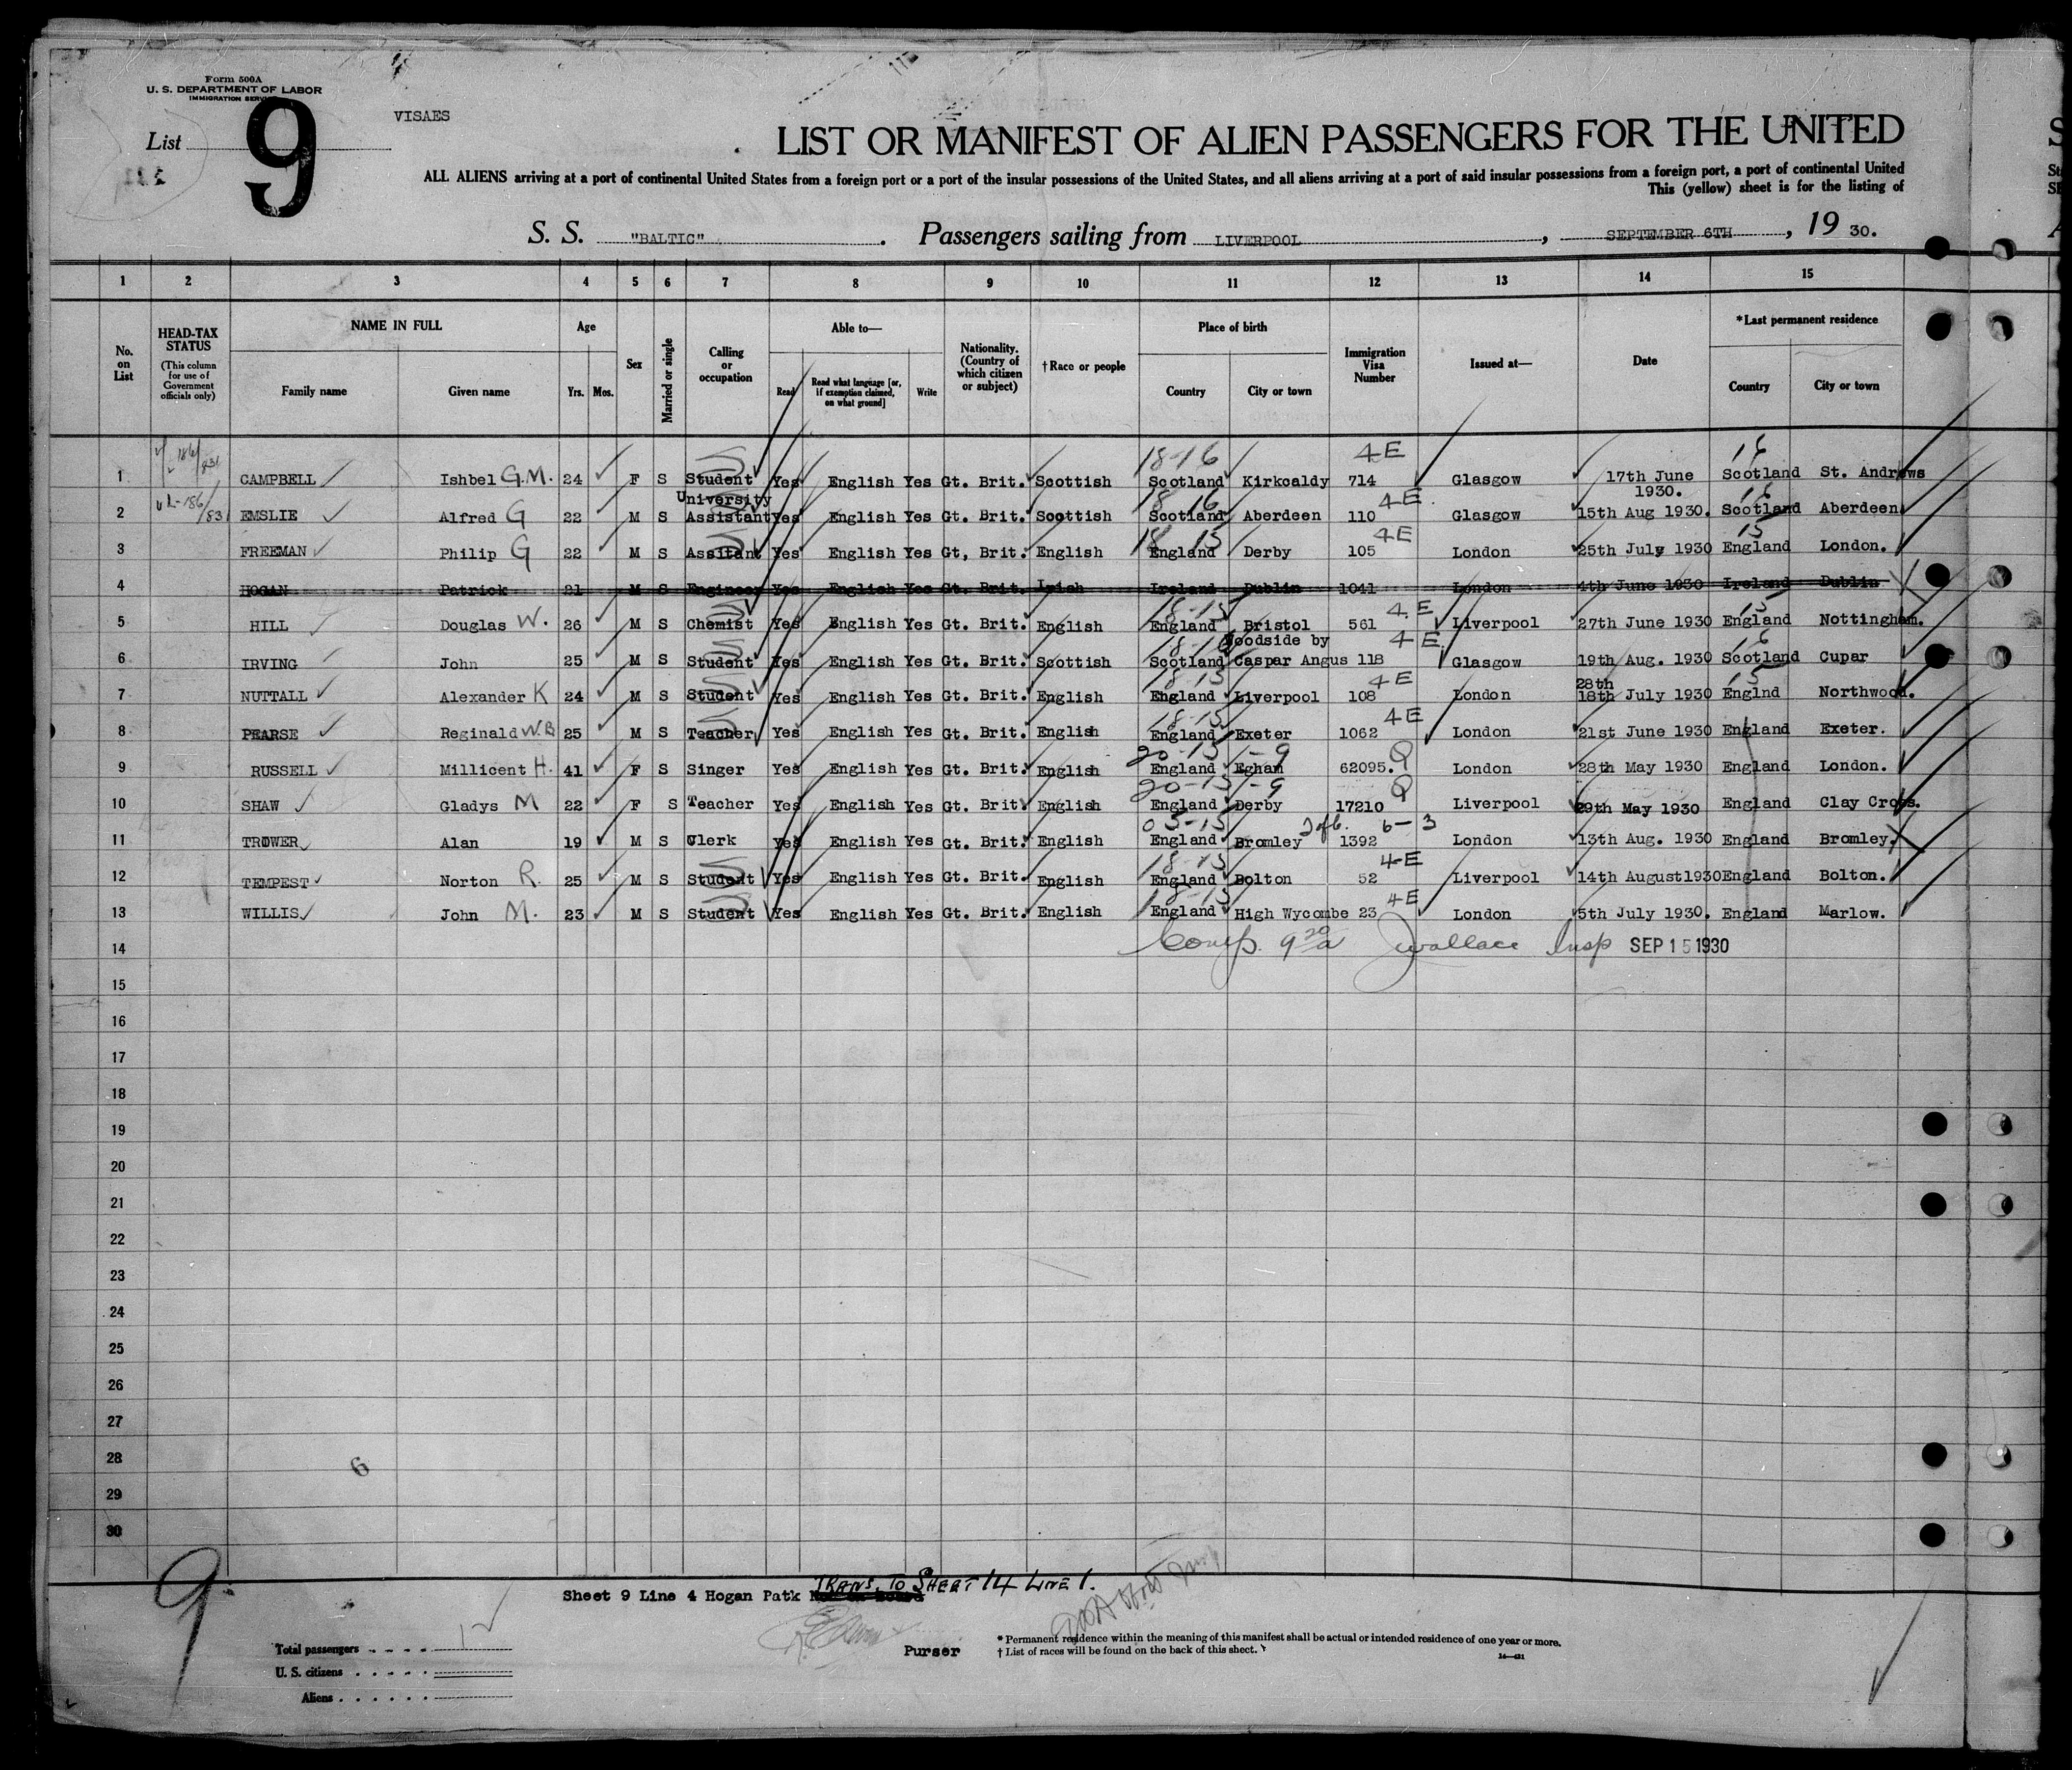 Form 500A
U. S. DEPARTMENT OF LABOR
IMMIGRATION SERVICE
VISAES
List 9
LIST OR MANIFEST OF ALIEN PASSENGERS FOR THE UNITED
ALL ALIENS arriving at a port of continental United States from a foreign port or a port of the insular possessions of the United States, and all aliens arriving at a port of said insular possessions from a foreign port, a port of continental United
This (yellow) sheet is for the listing of
S. S. "BALTIC" . Passengers sailing from LIVERPOOL , SEPTEMBER 6TH , 19 30.
1 2 3 4 5 6 7 8 9 10 11 12 13 14 15
No. on List
HEAD-TAX STATUS
(This column for use of Government officials only)
NAME IN FULL
Family name Given name
Age
Yrs. Mos.
Sex
Married or single
Calling or occupation
Able to—
Read Read what language [or, if exemption claimed, on what ground] Write
Nationality. (Country of which citizen or subject)
† Race or people
Place of birth
Country City or town
Immigration Visa Number
Issued at—
Date
*Last permanent residence
Country City or town
18-16 4E 16
1 CAMPBELL Ishbel G.M. 24 F S Student Yes English Yes Gt. Brit. Scottish Scotland Kirkcaldy 714 Glasgow 17th June 1930. Scotland St. Andrews
18 16 4E 16
2 EMSLIE Alfred G 22 M S University Assistant Yes English Yes Gt. Brit. Scottish Scotland Aberdeen 110 Glasgow 15th Aug 1930. Scotland Aberdeen
18 15 4E 15
3 FREEMAN Philip G 22 M S Assitant Yes English Yes Gt, Brit. English England Derby 105 London 25th July 1930 England London.
4 HOGAN Patrick 21 M S Engineer Yes English Yes Gt. Brit. Irish Ireland Dublin 1041 London 4th June 1930 Ireland Dublin
18-15 4E 15
5 HILL Douglas W. 26 M S Chemist Yes English Yes Gt. Brit. English England Bristol 561 Liverpool 27th June 1930 England Nottingham.
18-16 4E 16
6 IRVING John 25 M S Student Yes English Yes Gt. Brit. Scottish Scotland Woodside by Caspar Angus 118 Glasgow 19th Aug. 1930 Scotland Cupar
18-15 4E 15
7 NUTTALL Alexander K 24 M S Student Yes English Yes Gt. Brit. English England Liverpool 108 London 28th 18th July 1930 Englnd Northwood.
18-15 4E
8 PEARSE Reginald W.B 25 M S Teacher Yes English Yes Gt. Brit. English England Exeter 1062 London 21st June 1930 England Exeter.
20-15 1-9 Q
9 RUSSELL Millicent H. 41 F S Singer Yes English Yes Gt. Brit. English England Egham 62095. London 28th May 1930 England London.
20-15 1-9 Q
10 SHAW Gladys M 22 F S Teacher Yes English Yes Gt. Brit. English England Derby 17210 Liverpool 29th May 1930 England Clay Cross.
03-15 6-3
11 TROWER Alan 19 M S Clerk Yes English Yes Gt. Brit. English England Bromley 1392 London 13th Aug. 1930 England Bromley.
18-15 4-E
12 TEMPEST Norton R. 25 M S Student Yes English Yes Gt. Brit. English England Bolton 52 Liverpool 14th August1930 England Bolton.
18-15 4E
13 WILLIS John M. 23 M S Student Yes English Yes Gt. Brit. English England High Wycombe 23 London 5th July 1930. England Marlow.
14 Comp. 9 20 a J Wallace Insp SEP 15 1930
15
16
17
18
19
20
21
22
23
24
25
26
27
28
6
29
30
9
TRANS. TO SHEET 14 LINE 1.
Sheet 9 Line 4 Hogan Patk Not on Board
Purser
Total passengers 12
U. S. citizens
Aliens
* Permanent residence within the meaning of this manifest shall be actual or intended residence of one year or more.
† List of races will be found on the back of this sheet.